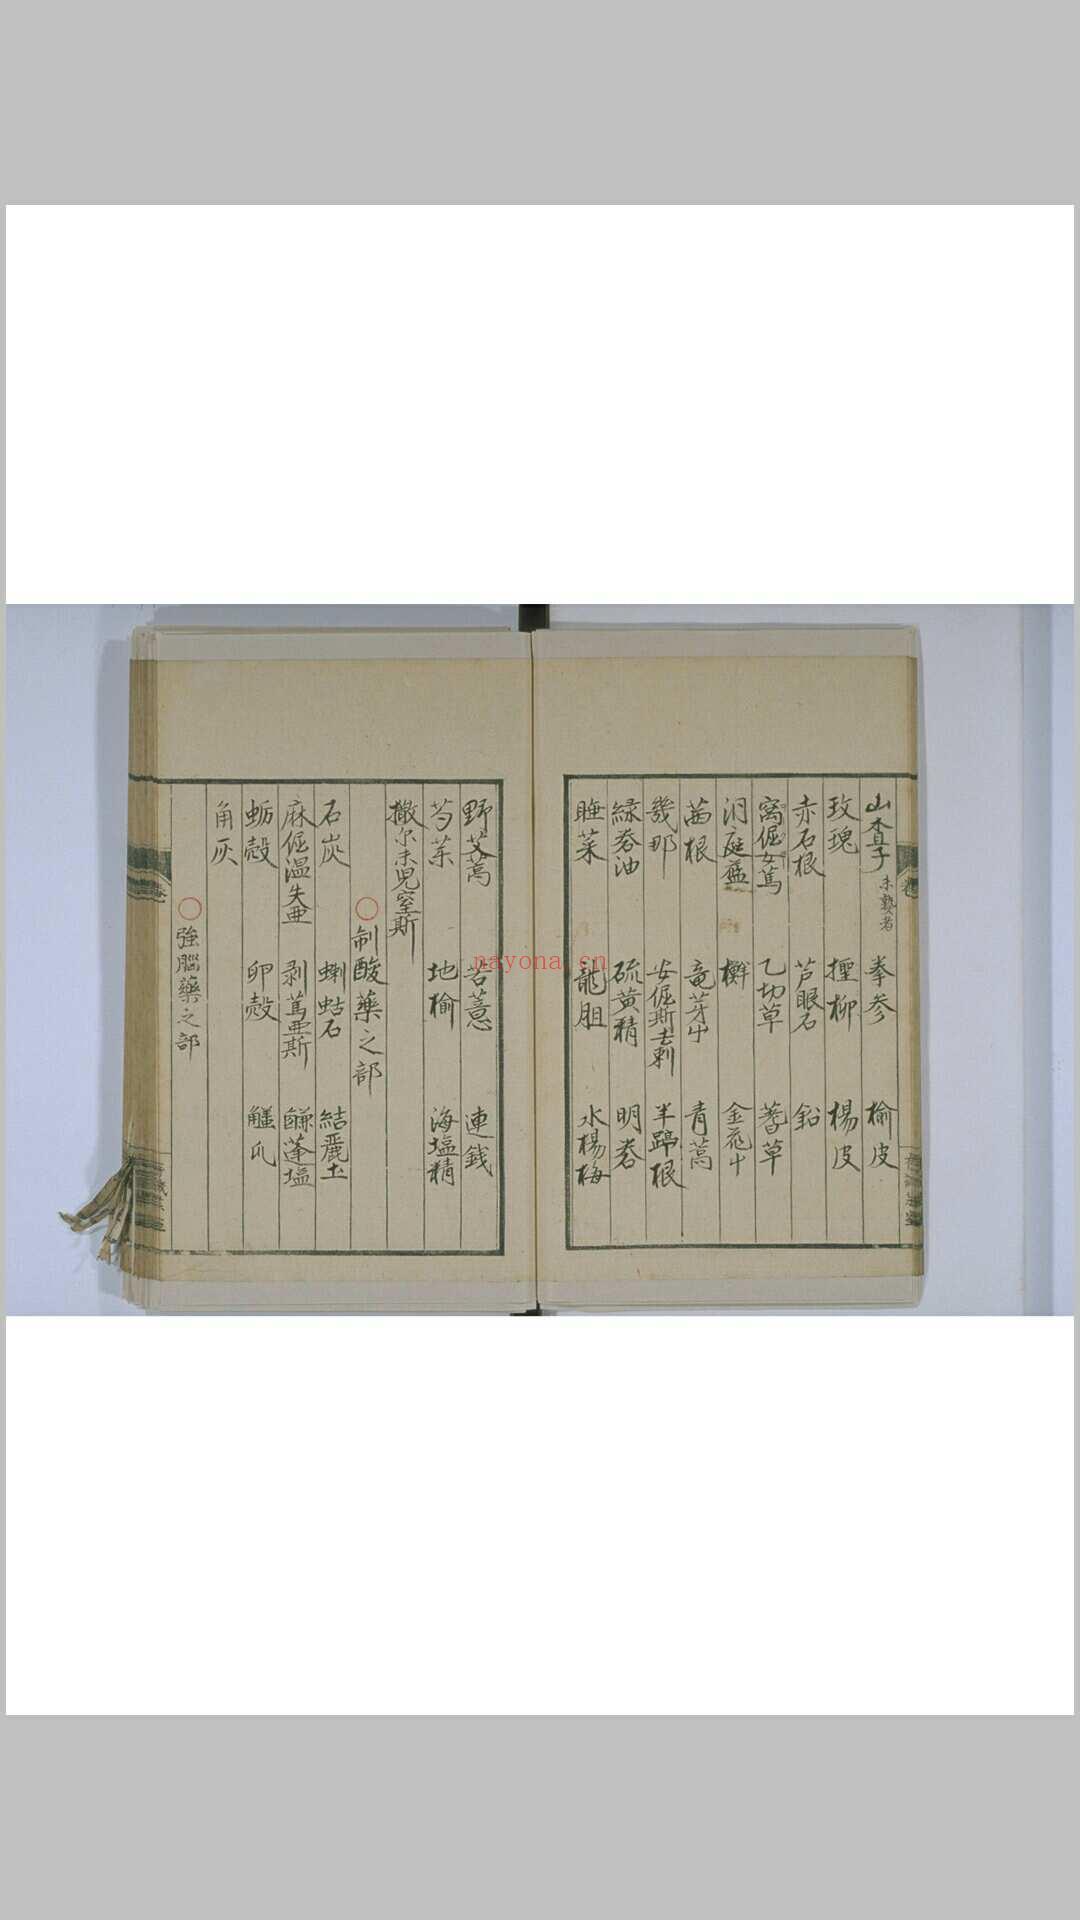 山査子 未熟者 拳参 楡皮
玫瑰 檉柳 楊皮
赤石根 芦眼石 鉛
窩倔女篤 乙切草 蓍草
洞庭藍 欅 金花中
茜根 竜芽中 青蒿
幾那 安倔斯去剌 羊蹄根
緑礬油 硫黄精 明礬
睡菜 龍胆 水楊梅
野艾蒿 苦薏 連銭
芍茱 地楡 海塩精
撒尔末児窒斯
○制酸薬之部
石炭 蝲蛄石 結麗土
麻倔涅失亜 剥篤亜斯 鹻蓬塩
蛎殻 卵殻 爪
角灰
○強脳薬之部
nayona.cn